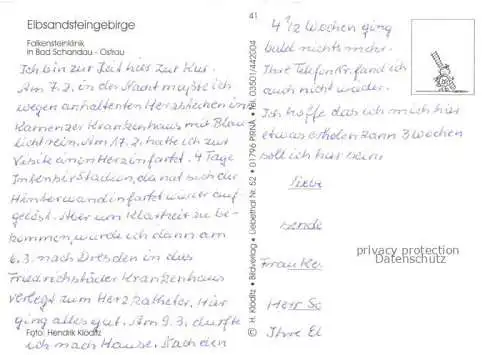 Elbsandsteingebirge
Falkensteinklinik
in Bad Schandau - Ostrau
Ich bin zur Zeit hier zur Kur.
Am 7.2. in der Nacht mußte ich
wegen anhaltenten Herzstechen im
Kamenzer Krankenhaus mit Blau
Licht rein. Am 17.2. hatte ich zur
Visite ein Herzinfarkt. 4 Tage
Intensiv Stadion, da hat sich der
Hinterwandinfarkt wieder auf-
gelöst. Aber um Klarheit zu be-
kommen, wurde ich dann am
6.3. nach Dresden in das
Friedrichstädter Krankenhaus
verlegt zum Herzkatheter. Hier
ging alles gut. Am 9.3. durfte
ich nach Hause. Nach den
Foto: Hendrik Kloditz
41
© H. Kloditz • Bildverlag • Liebethal Nr. 52 • 01796 PIRNA • Tel. 03501/442004
4 1/2 Wochen ging
bald nichts mehr.
Ihre Telefon Nr. fand ich
auch nicht wieder.
Ich hoffe das ich mich hier
etwas erholen kann 3 Wochen
soll ich hier sein.
Liebe
sende
Frau
Herr
Ihre
privacy protection
Datenschutz